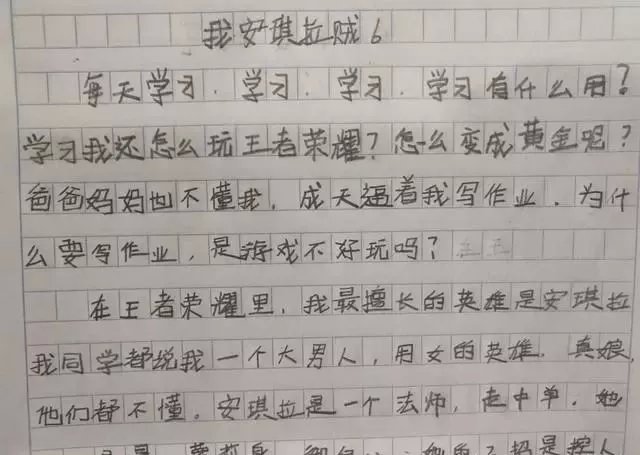 我安琪拉贼6
每天学习、学习、学习、学习有什么用?
学习我还怎么玩王者荣耀?怎么变成黄金呢?
爸爸妈妈也不懂我,成天逼着我写作业,为什
么要写作业,是游戏不好玩吗?
在王者荣耀里,我最擅长的英雄是安琪拉
我同学都说我一个大男人,用女的英雄,真娘,
他们都不懂。安琪拉是一个法师,走中单,她